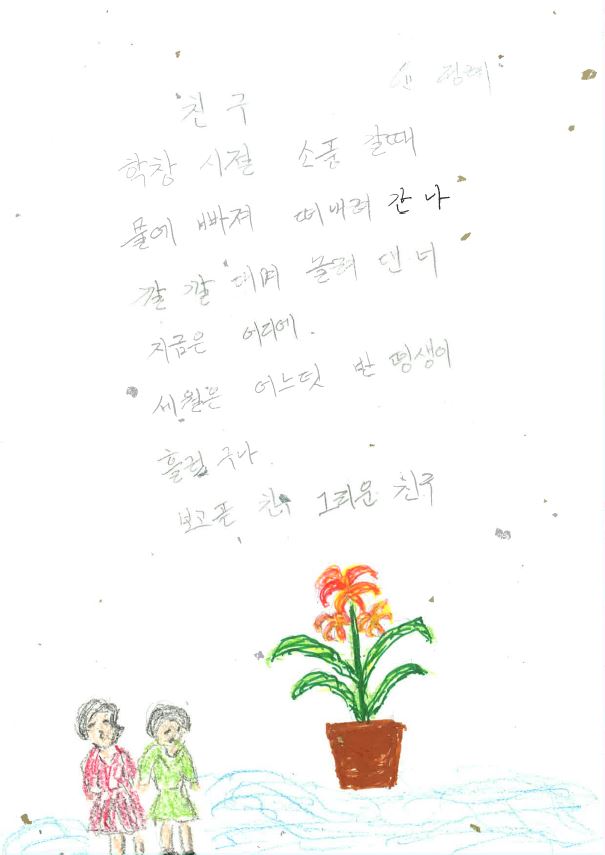 윤 정례
친구
학창 시절 소품 갈때
물에 빠져 떠내려 간 나
깔 깔 대며 놀려 댄 너
지금은 어디에.
세월은 어느덧 반 평생이
흘렀구나.
보고픈 친구 그리운 친구